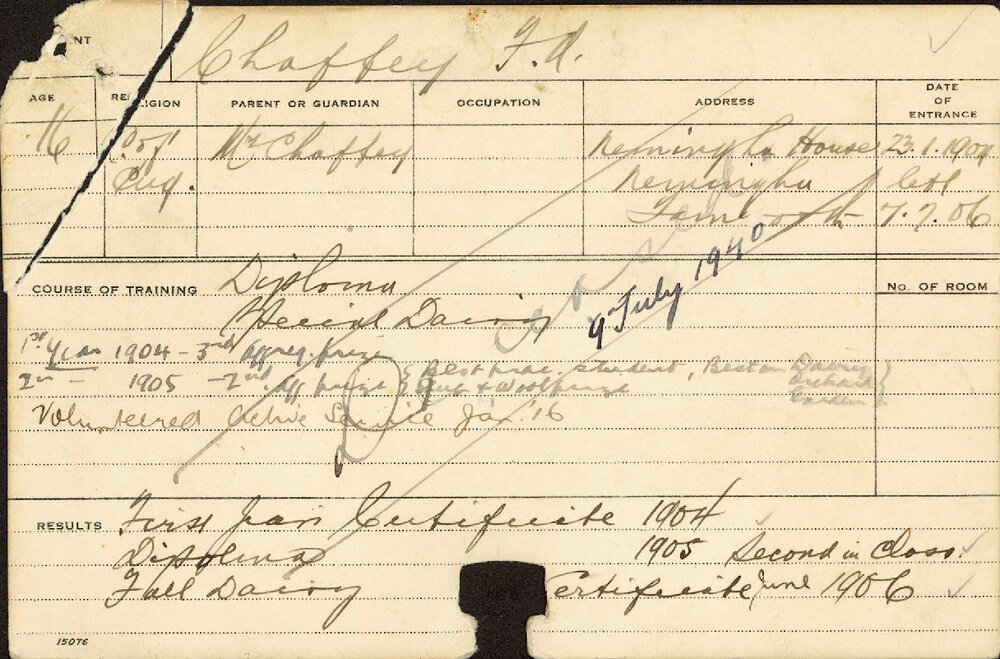 NT
Chaffey F. A.
AGE RELIGION PARENT OR GUARDIAN OCCUPATION ADDRESS DATE OF ENTRANCE
16 Mr Chaffey Nemingha House 23.1.1904
Eng. Nemingha
Tamworth 7.7.06
COURSE OF TRAINING Diploma No. OF ROOM
Special Dairy
deceased
9 July 1940
1st Year 1904 - 3rd Aggreg. prize
2nd - 1905 - 2nd Agg prize { Best prac. student, Best in Dairy Orchard Garden }
Sheep & Wool prize
Volunteered Active Service Jan '16
RESULTS First Year Certificate 1904
Diploma 1905 Second in Class.
Full Dairy Certificate June 1906
15076